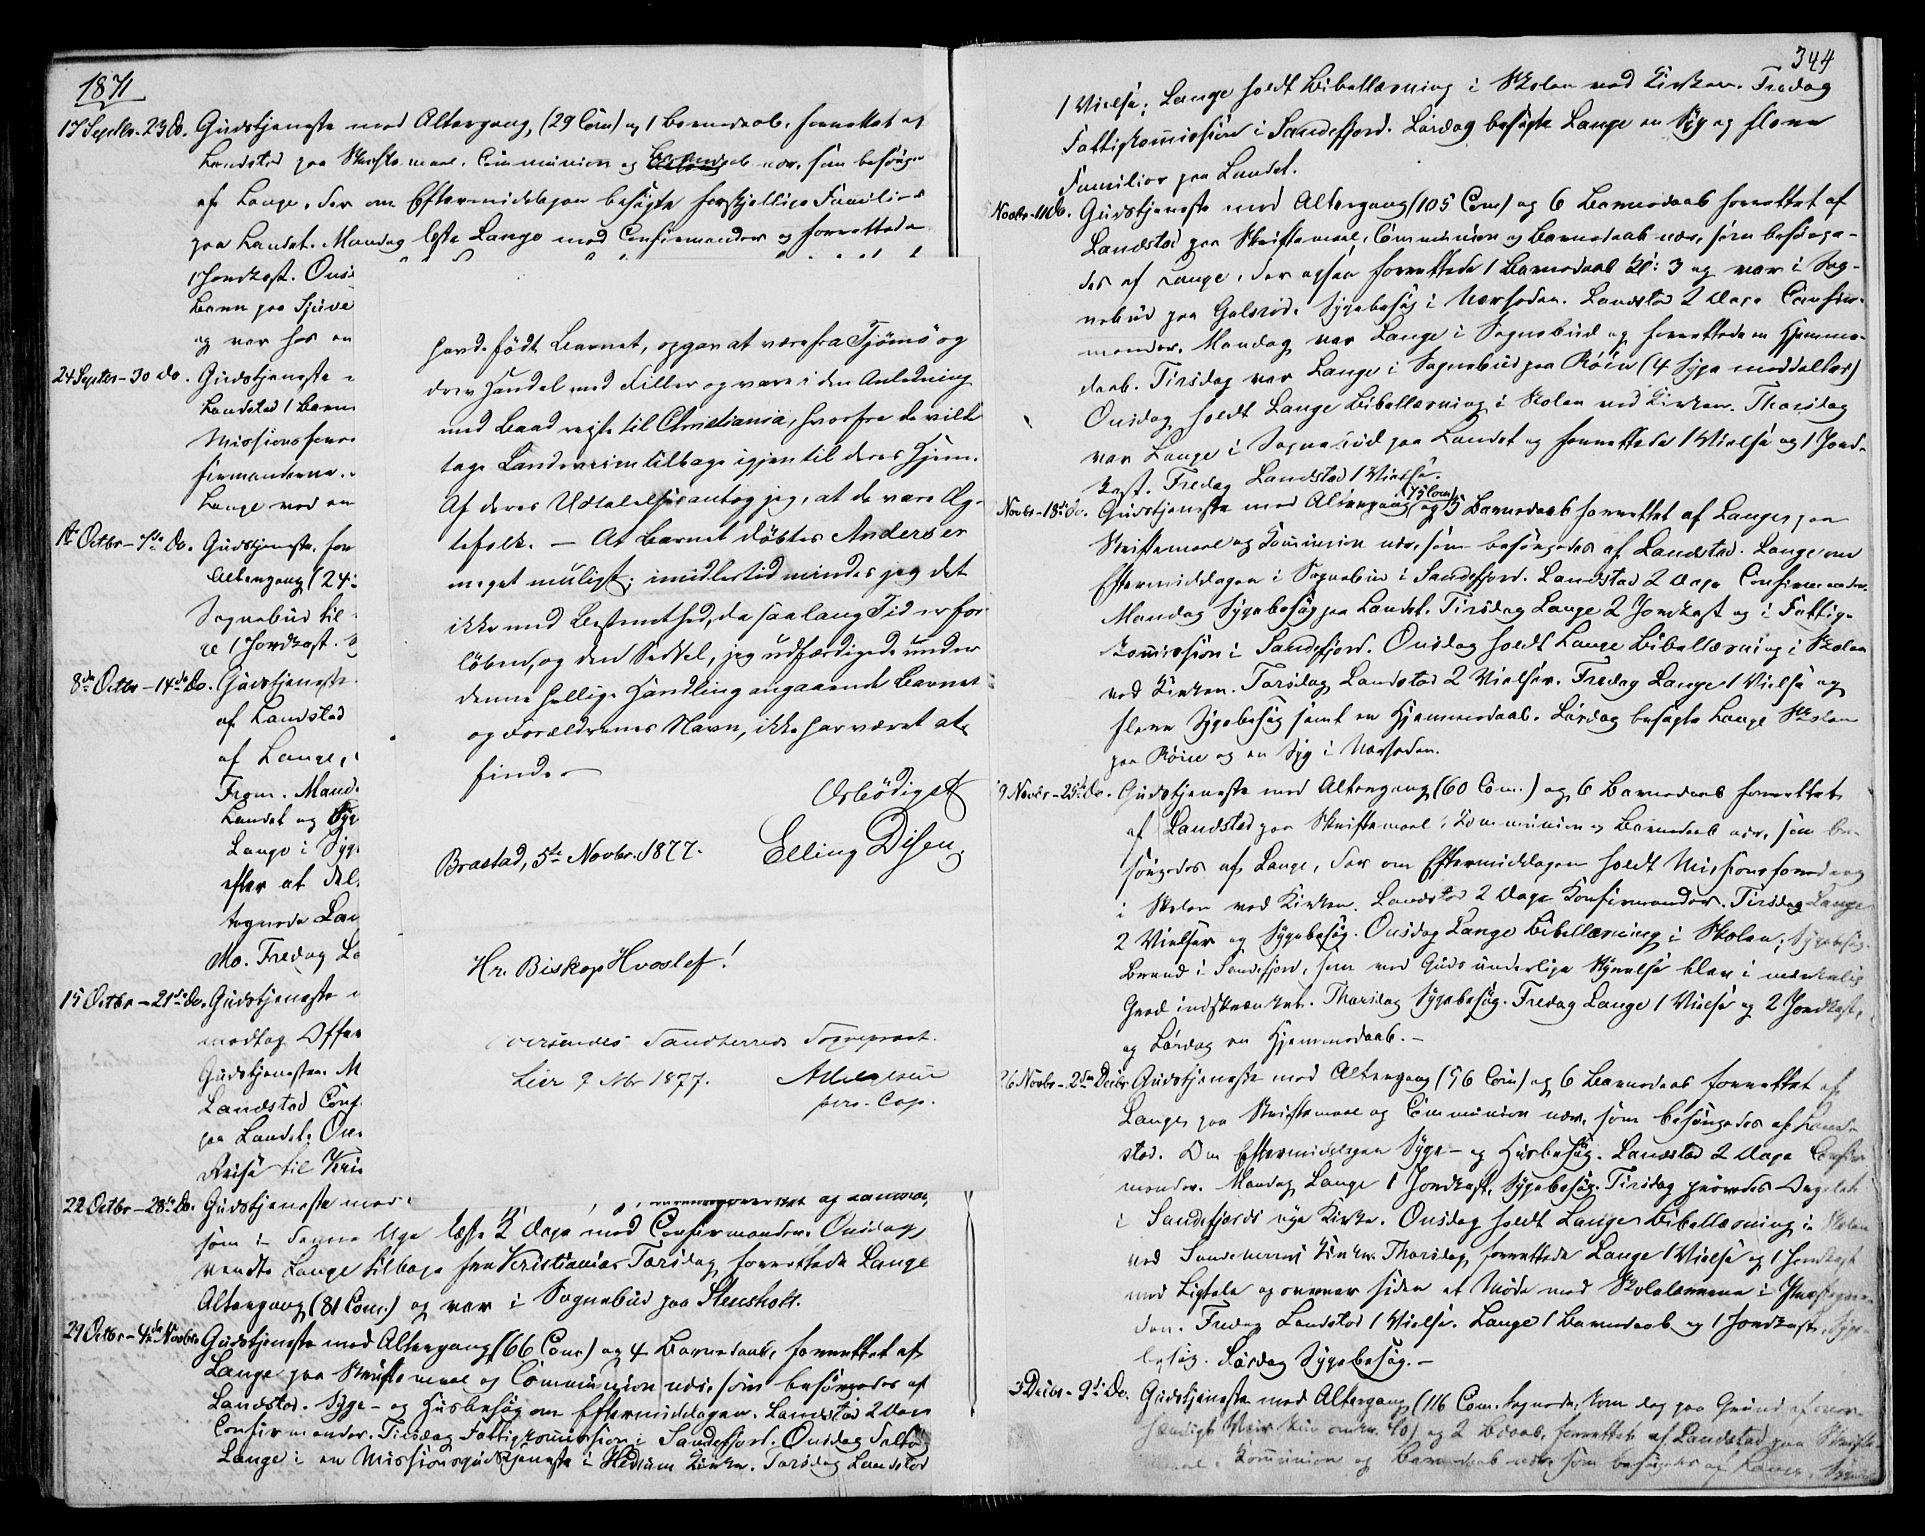 1871
17 Septbr-23 Do. Gudstjeneste med Altergang, (29 Com) og 1 Barnedaab, forrettet af
Landstad paa Skriftemaal, Communion og Barnedaab nær, som besørge
af Lange, der om Eftermiddagen besøgte forskjellige Familier
paa Landet. Mandag læste Lange med Confirmander og forrettede
1 Jordkast. Ons
Barn paa
og var hos en
24 Septbr-30 do. Gudstjeneste
Landstad 1 Barn
Missionsfore
firmanderne.
Lange ved en
1ste Octbr-7de Do. Gudstjeneste, for
Altergang (24
Sognebud til
te 1 Jordkast.
8de Octbr-14de Do. Gudstjeneste
af Landstad
af Lange,
From. Mand
Landet og Syg
Lange i Syg
efter at del
tegnede Lan
Mo. Fredag La
15 Octbr-21de Do. Gudstjeneste
modtog Offer
Gudstjenesten. M
Landstad Conf
paa Landet. Ons
Reise til Kris
22 Octbr-28de Do. Gudstjeneste med
som i denne Uge læste 2 Dage med Confirmander. Onsdag
vendte Lange tilbage fra Kristiania. Torsdag forrettede Lange
Altergang (81 Com.) og var i Sognebud paa Stensholt.
29 Octbr-4de Novbr Gudstjeneste med Altergang (66 Com) og 4 Barnedaab, forrettet af
Lange paa Skriftemaal og Communion nær, som besørgedes af
Landstad. Syge- og Husbesøg om Eftermiddagen. Landstad 2 Dage
Confirmander. Tirsdag Fattigkommission i Sandefjord. Onsdag deltog
Lange i en Missionsgudstjeneste i Hedrum Kirke. Torsdag Landstad
havde født Barnet, opgav at være fra Tjømø og
drev Handel med Filler og vare i den Anledning
med Baad reiste til Christiania, hvorfra de vilde
tage Landeveien tilbage igjen til deres Hjem.
Af deres Udtalelser antog jeg, at de vare Æg-
tefolk. — At Barnet døbtes Anders er
meget muligt; imidlertid mindes jeg det
ikke med Bestemthed, da saa lang Tid er for-
løben, og den Seddel, jeg udfærdigede under
denne hellige Handling angaaende Barnet
og Forældrenes Navn, ikke har været at
finde. —
Ærbødigst
Brastad, 5te Novbr. 1877. Elling Disen.
Hr. Biskop Hvoslef!
oversendes Sandherreds Sogneprest.
Lier 9 Nbr 1877.
pers. Cap.
344
1 Vielse; Lange holdt Bibellæsning i Skolen ved Kirken. Fredag
Fattigkommission i Sandefjord. Lørdag besøgte Lange en Syg og flere
Familier paa Landet.
Novbr-11 Do. Gudstjeneste med Altergang (105 Com) og 6 Barnedaab forrettet af
Landstad paa Skriftemaal, Communion og Barnedaab nær, som besørge-
des af Lange, der ogsaa forrettede 1 Barnedaab Kl: 3 og var i Sog-
nebud paa Galsrød. Sygebesøg i Nærheden. Landstad 2 Dage Confir-
mander. Mandag var Lange i Sognebud og forrettede en Hjemme-
daab. Tirsdag var Lange i Sognebud paa Røien (4 Syge meddeltes)
Onsdag holdt Lange Bibellæsning i Skolen ved Kirken. Thorsdag
var Lange i Sognebud paa Landet og forrettede 1 Vielse og 1 Jord-
kast. Fredag Landstad 1 Vielse.
Novbr-18de Do. Gudstjeneste med Altergang (75 Com) og 5 Barnedaab forrettet af Lange paa
Skriftemaal og Kommunion nær, som besørgedes af Landstad. Lange om
Eftermiddagen i Sognebud i Sandefjord. Landstad 2 Dage Confirmander.
Mandag Sygebesøg paa Landet. Tirsdag Lange 2 Jordkast og i Fattig-
kommission i Sandefjord. Onsdag holdt Lange Bibellæsning i Skolen
ved Kirken. Torsdag Landstad 2 Vielser. Fredag Lange 1 Vielse og
flere Sygebesøg samt en Hjemmedaab. Lørdag besøgte Lange Skolen
paa Røien og en Syg i Nærheden.
19 Novbr-25de Do. Gudstjeneste med Altergang (60 Com.) og 6 Barnedaab forrettet
af Landstad paa Skriftemaal, Kommunion og Barnedaab nær, som be-
sørgedes af Lange, der om Eftermiddagen holdt Missionsforedrag
i Skolen ved Kirken. Landstad 2 Dage Konfirmander. Tirsdag Lange
2 Vielser og Sygebesøg. Onsdag Lange Bibellæsning i Skolen; Sygebesøg.
Brand i Sandefjord, som ved Guds underlige Styrelse blev i mærkelig
Grad indskrænket. Thorsdag Sygebesøg. Fredag Lange 1 Vielse og 2 Jordkast,
og Lørdag en Hjemmedaab. —
26 Novbr-2den Decbr Gudstjeneste med Altergang (56 Com) og 6 Barnedaab forrettet af
Lange, paa Skriftemaal og Communion nær, som besørgedes af Land-
stad. Om Eftermiddagen Syge- og Husbesøg. Landstad 2 Dage Confir-
mander. Mandag Lange 1 Jordkast, Sygebesøg. Tirsdag prøvedes Orgelet
i Sandefjords nye Kirke. Onsdag holdt Lange Bibellæsning i Skolen
ved Sandeherreds Kirke. Thorsdag forrettede Lange 1 Vielse og 1 Jordkast
med Ligtale og overvar siden et Møde med Skolelærerne i
den. Fredag Landstad 1 Vielse. Lange 1 Barnedaab og 1 Jordkast, Syge-
besøg. Lørdag Sygebesøg. —
3 Decbr-9de Do. Gudstjeneste med Altergang (116 Com. tegnede, kom dog paa Grund af
Veir kun omkr. 40) og 2 Bdaab, forrettet af Landstad paa Skrifte-
maal, Kommunion og Barnedaab nær, som besørgedes af Lange.